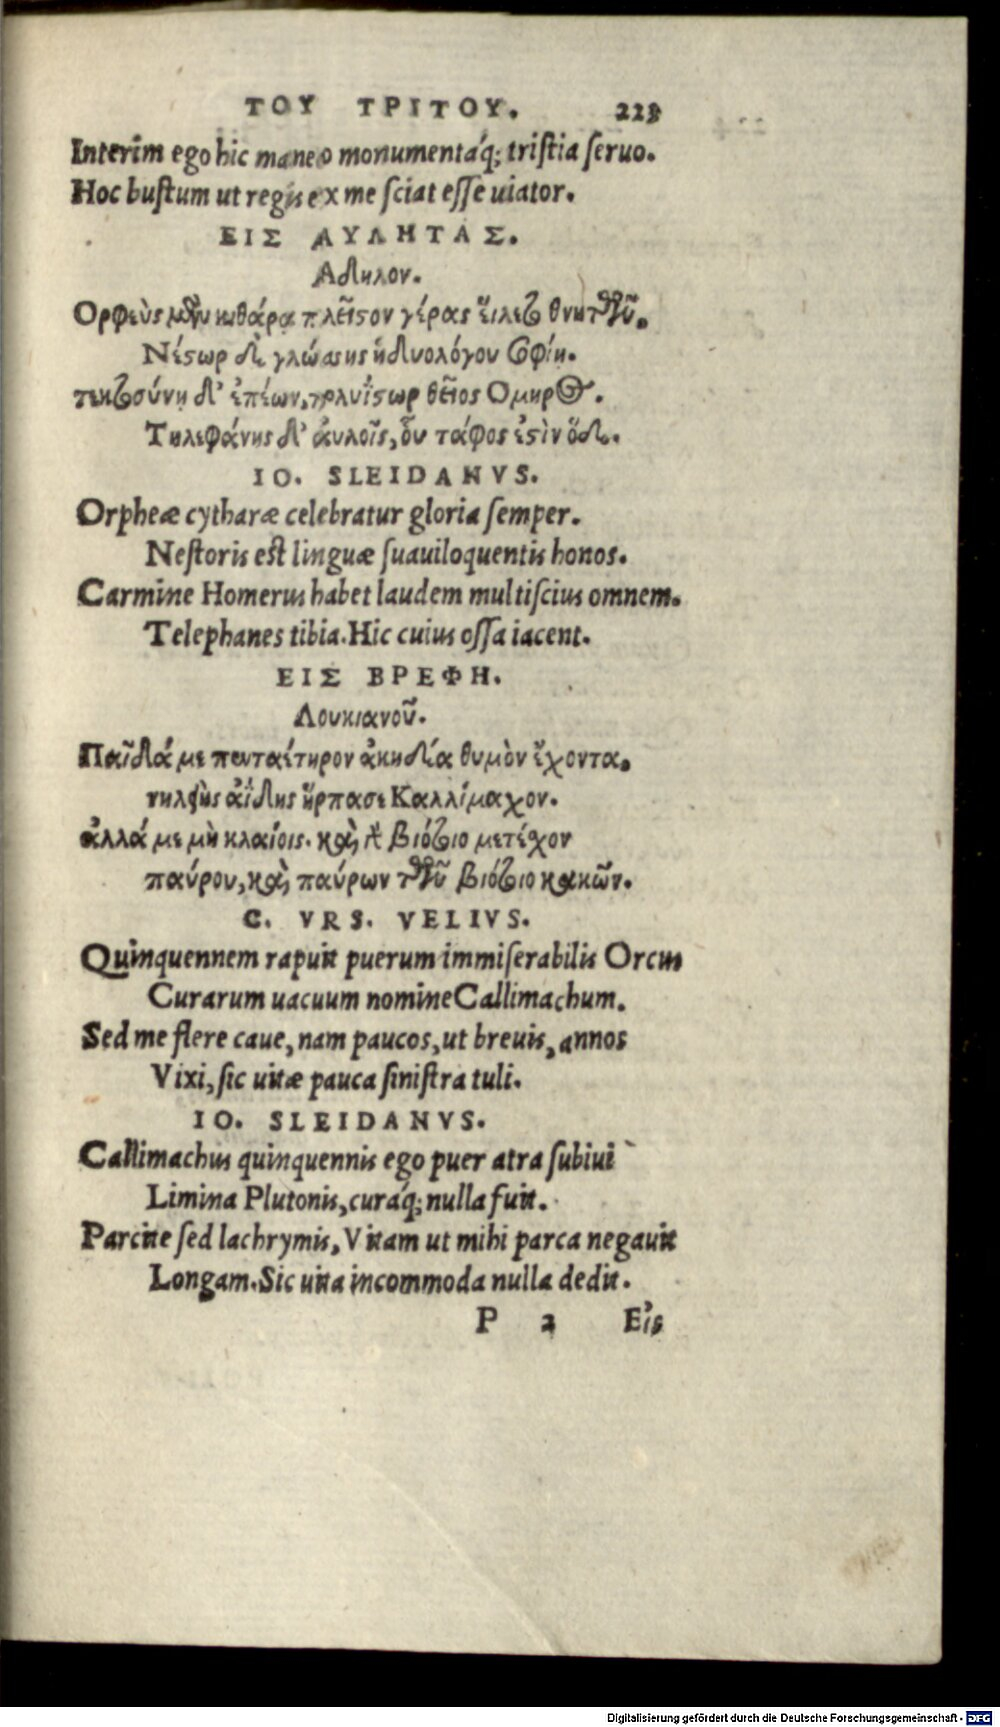 ΤΟΥ ΤΡΙΤΟΥ. 223
Interim ego hic maneo monumentáq; tristia seruo.
Hoc bustum ut regis ex me sciat esse uiator.
ΕΙΣ ΑΥΛΗΤΑΣ.
Αδηλον.
Ορφεὺς μὲν κιθάρα πλεῖστον γέρας εἵλετο θνητῶν.
Νέστωρ δὲ γλώσσης ἡδυολόγου σοφίη.
τεκτοσύνη δ' ἐπέων, πολυΐστωρ θεῖος Ομηρος.
Τηλεφάνης δ' ἀυλοῖς, οὗ τάφος ἐστὶν ὅδε.
IO. SLEIDANVS.
Orpheæ cytharæ celebratur gloria semper.
Nestoris est linguæ suauiloquentis honos.
Carmine Homerus habet laudem multiscius omnem.
Telephanes tibia. Hic cuius ossa iacent.
ΕΙΣ ΒΡΕΦΗ.
Λουκιανοῦ.
Παῖδά με πενταέτηρον ἀκηδέα θυμὸν ἔχοντα.
νηλὴς ἀΐδης ἥρπασε Καλλίμαχον.
ἀλλά με μὴ κλαίοις. καὶ γὰρ βιότοιο μετέχον
παύρου, καὶ παύρων τῶν βιότοιο κακῶν.
C. VRS. VELIVS.
Quinquennem rapuit puerum immiserabilis Orcus
Curarum uacuum nomine Callimachum.
Sed me flere caue, nam paucos, ut breuis, annos
Vixi, sic uitæ pauca sinistra tuli.
IO. SLEIDANVS.
Callimachus quinquennis ego puer atra subiui
Limina Plutonis, curáq; nulla fuit.
Parcite sed lachrymis, Vitam ut mihi parca negauit
Longam. Sic uita incommoda nulla dedit.
P 2 Εἰς
Digitalisierung gefördert durch die Deutsche Forschungsgemeinschaft - DFG